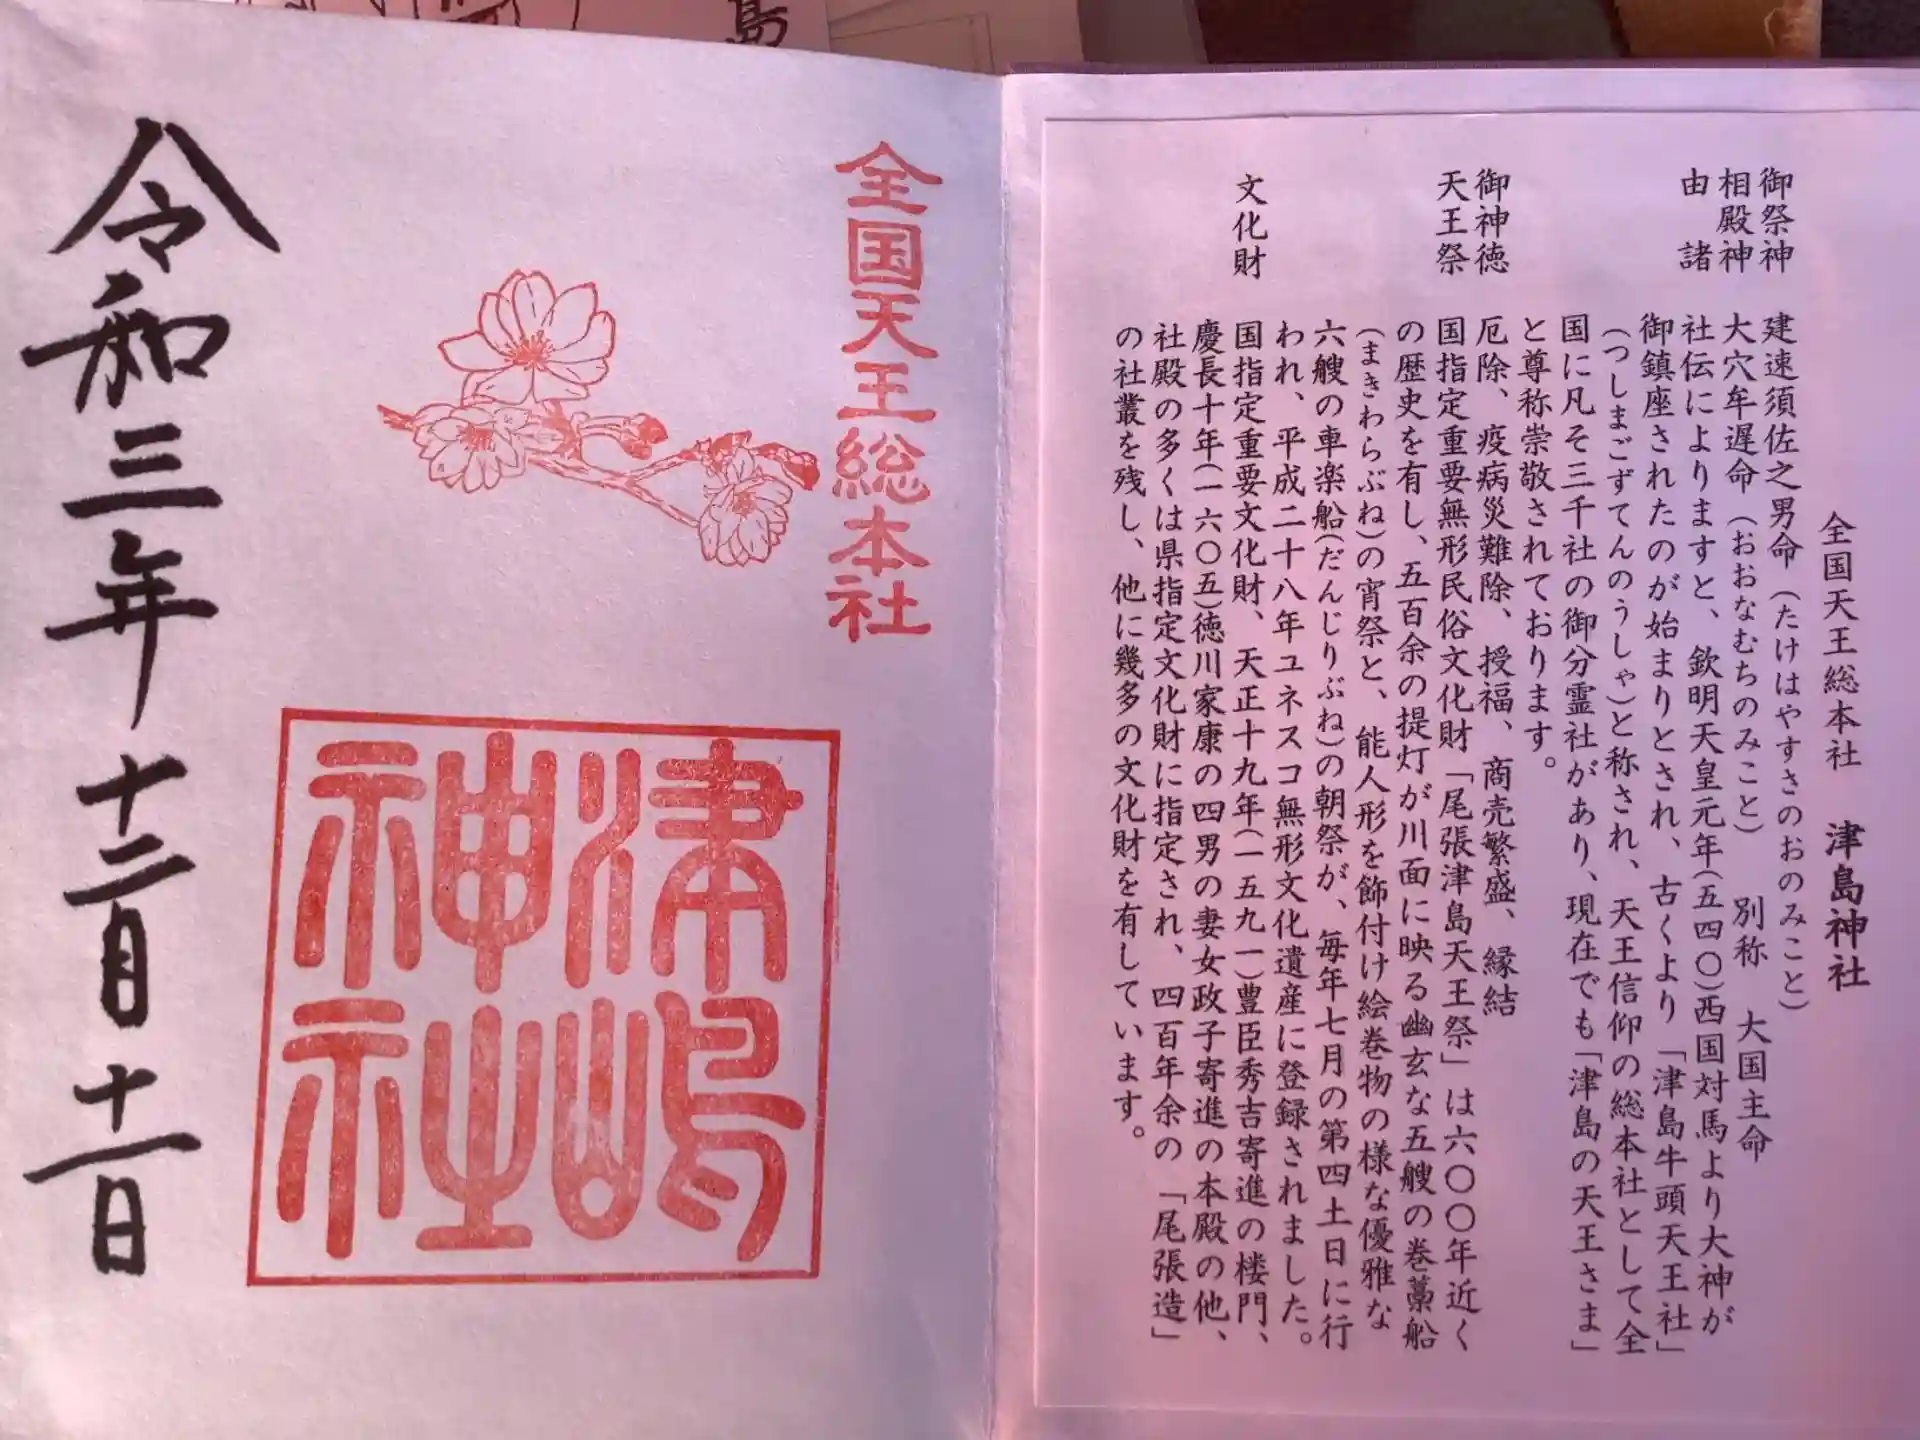 全国天王総本社　津島神社
御祭神　建速須佐之男命（たけはやすさのおのみこと）
相殿神　大穴牟遅命（おおなむちのみこと）　別称　大国主命
由　諸　社伝によりますと、欽明天皇元年(五四〇)西国対馬より大神が
御鎮座されたのが始まりとされ、古くより「津島牛頭天王社」
（つしまごずてんのうしゃ）と称され、天王信仰の総本社として全
国に凡そ三千社の御分霊社があり、現在でも「津島の天王さま」
と尊称崇敬されております。
御神徳　厄除、疫病災難除、授福、商売繁盛、縁結
天王祭　国指定重要無形民俗文化財「尾張津島天王祭」は六〇〇年近く
の歴史を有し、五百余の提灯が川面に映る幽玄な五艘の巻藁船
(まきわらぶね)の宵祭と、能人形を飾付け絵巻物の様な優雅な
六艘の車楽船(だんじりぶね)の朝祭が、毎年七月の第四土日に行
われ、平成二十八年ユネスコ無形文化遺産に登録されました。
文化財　国指定重要文化財、天正十九年(一五九一)豊臣秀吉寄進の楼門、
慶長十年(一六〇五)徳川家康の四男の妻女政子寄進の本殿の他、
社殿の多くは県指定文化財に指定され、四百年余の「尾張造」
の社叢を残し、他に幾多の文化財を有しています。
全国天王総本社
津嶋
神社
令和三年十二月十一日
島